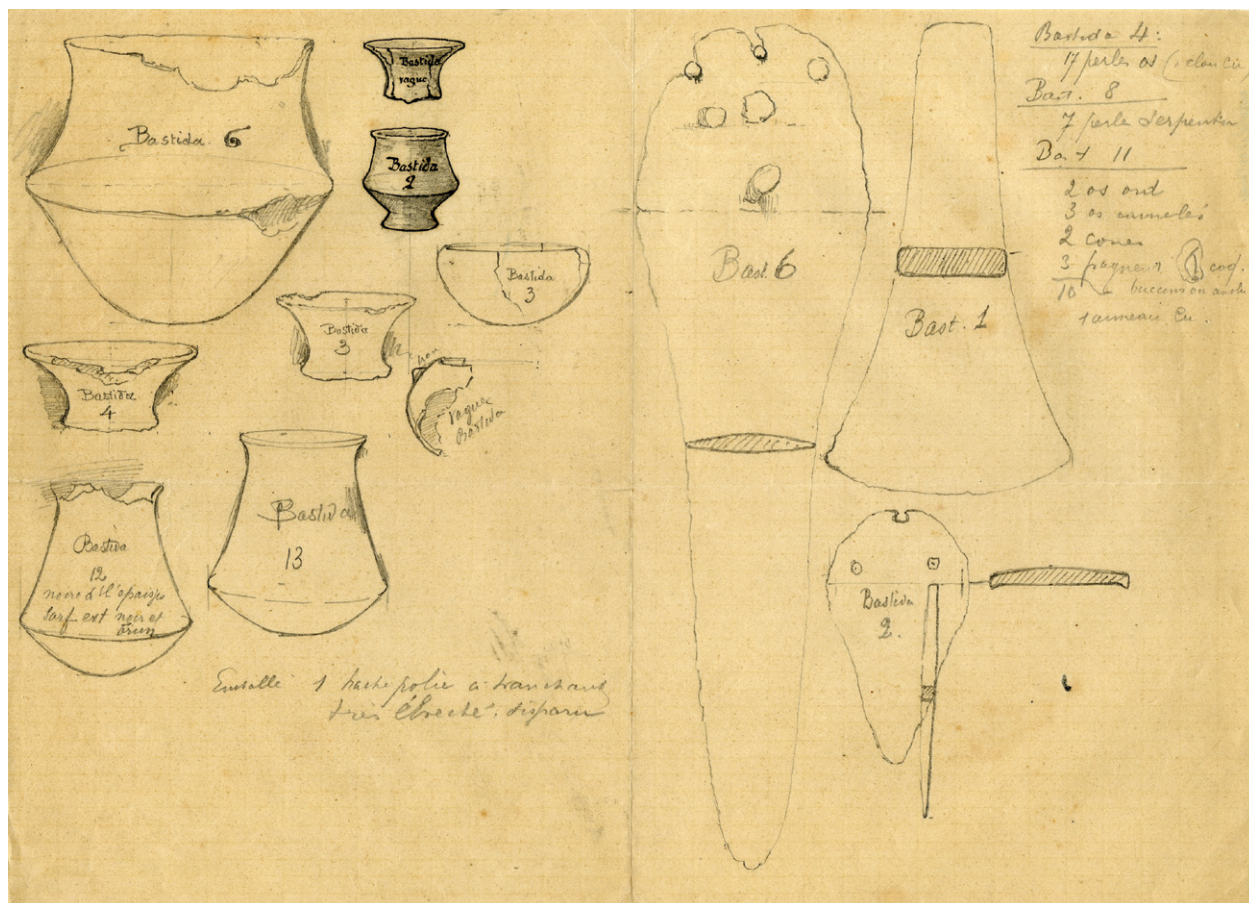 Bastida 6
Bastida
vague
Bastida
2
Bastida
3
Bastida
3
Bastida
4
vague
Bastida
Bastida
12
noire à l'épaiss
surf ext noir et
brun
Bastida
13
Emballé 1 hache polie à tranchant
très ébréché. disparu
Bast. 6
Bast. 1
Bastida
2.
Bastida 4:
17 perles os (1 clou Cu)
Bast. 8
7 perle Serpentin
Bast 11
2 os
3 os annelés
2 cones
3 coq.
10
1 anneau Cu.